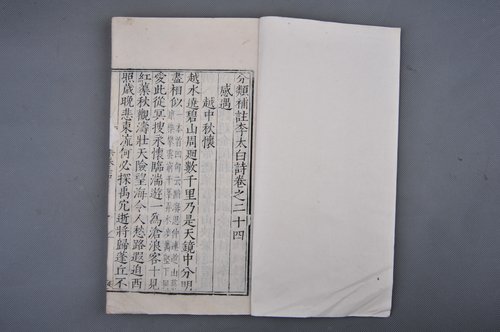 分類補註李太白詩卷之二十四
感遇
越中秋懷
越水遶碧山周迴數千里乃是天鏡中分明
盡相似
愛此從冥搜永懷臨湍遊一為滄浪客十見
紅蕖秋觀濤壯天險望海令人愁路遐迫西
照歲晚悲東流何必探禹穴逝將歸蓬丘不